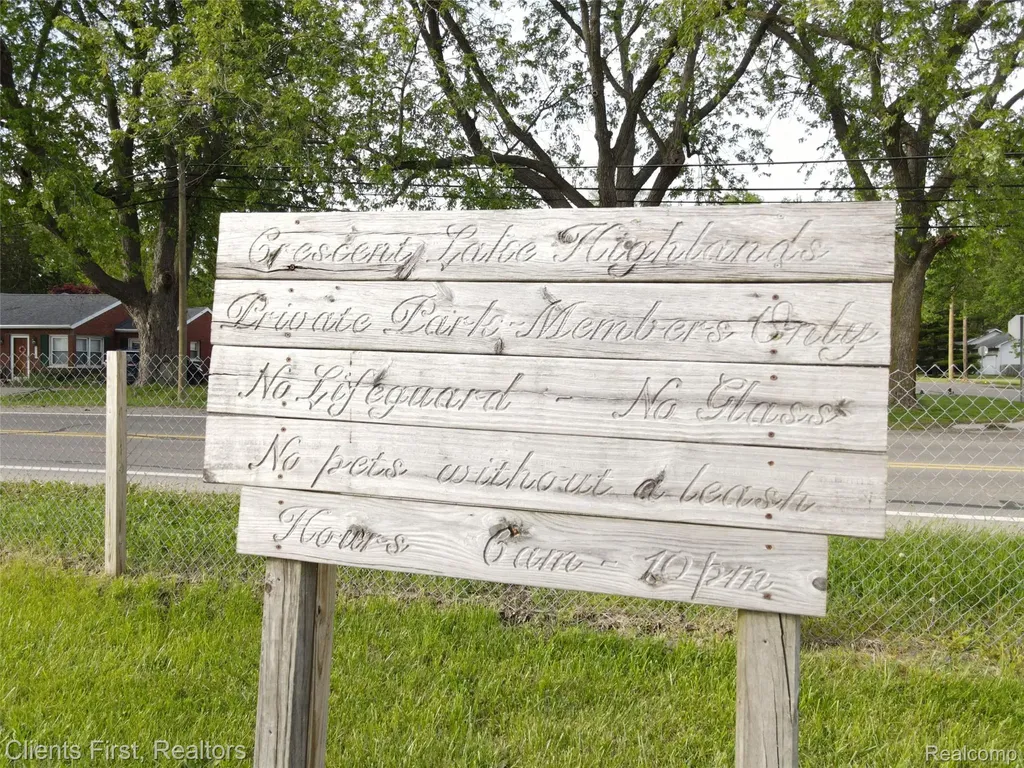 Crescent Lake Highlands
Private Park - Members Only
No Lifeguard - No Glass
No pets without a leash
Hours 6am - 10pm
Clients First, Realtors
Realcomp